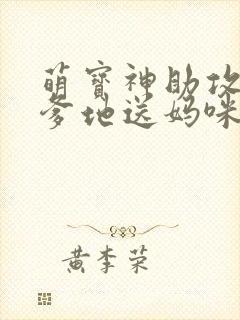 萌寶神助攻
爹地送媽咪
黄李荣